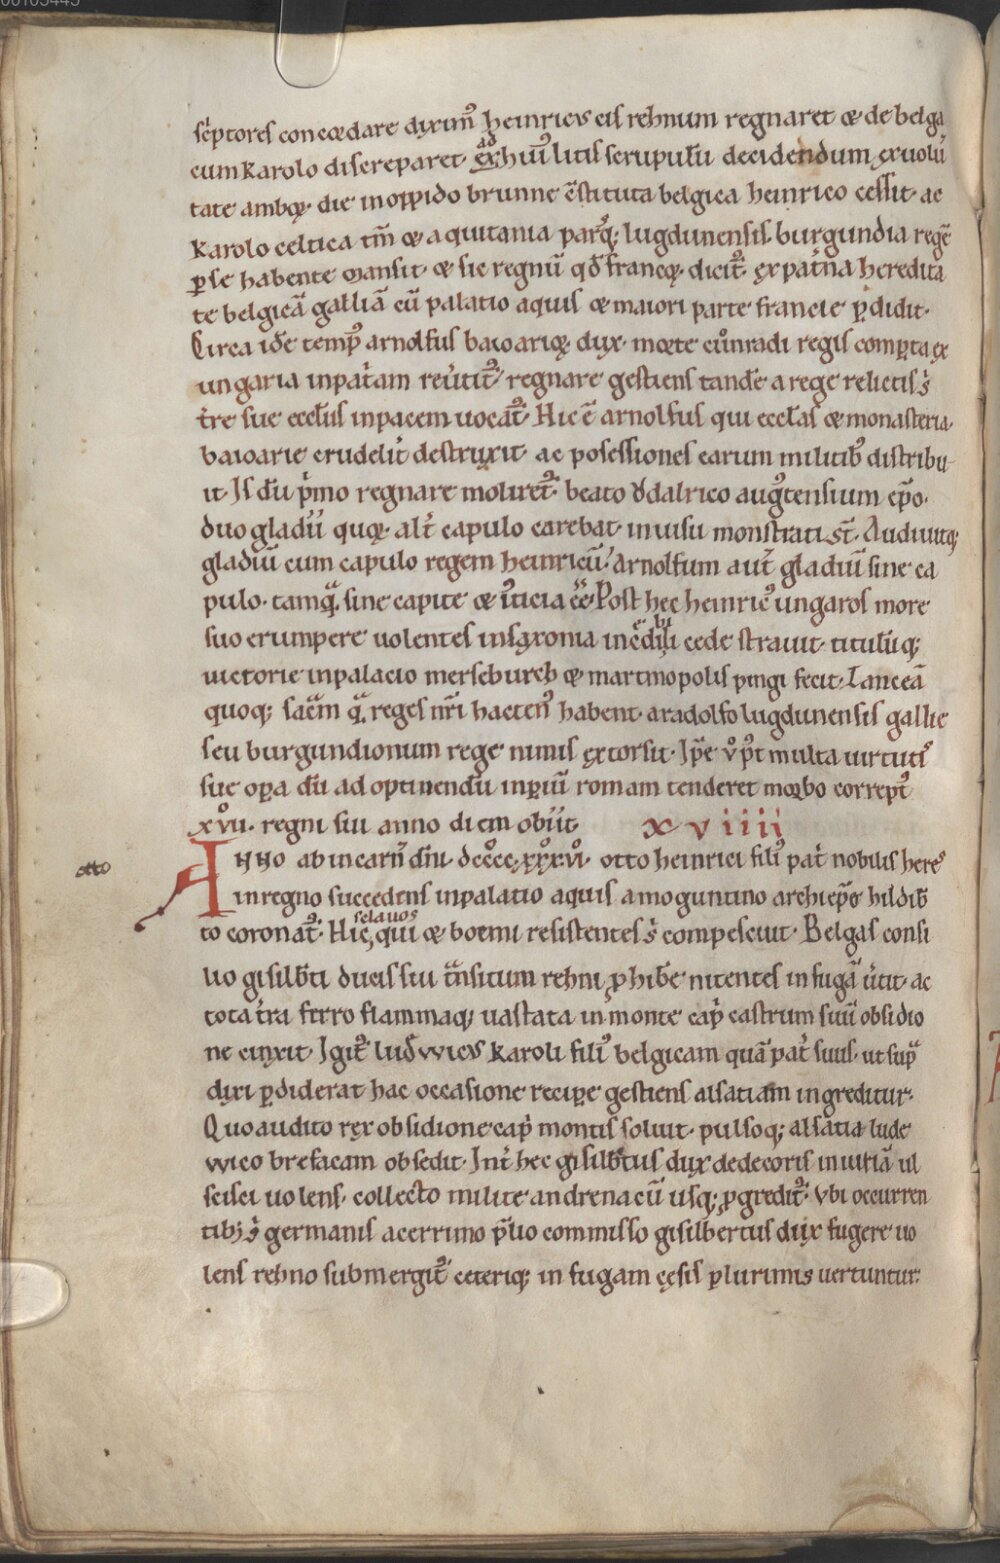 00105445
sc̄ptores concordare dyxim᷒ heinricus cis rehnum regnaret & de belga
cum karolo discreparet. ad ex hui᷒ litis scrupulū decidendum ex uolū
tate amboꝝ. die in oppido brunne c̄stituta belgica heinrico cessit. ac
karolo celtica tm̄ & aquitania parq᷒ꝫ lugdunensis. burgundia regē
ꝑ se habente mansit. & sic regnū qd̄ francoꝝ. dicit᷒. ex pat̄na heredita
te belgicā galliā cū palatio aquis & maiori parte francie ꝑdidit.
Circa idē temp᷒ arnolfus baioarioꝝ. dux. morte cuͦnradi regis comꝑta ex
ungaria in pat̄am reūtit᷒. regnare gestiens tandē a rege relictis s᷒
t̄re sue ecclīis in pacem uocat᷒. Hic ē arnolfus qui ecclās & monasteria
baioarie crudelit̄ destruxit. ac posessiones earum militib᷒ distribu
it. Is dū p̄mo regnare moliret᷒. beato vͦdalrico aug᷒tensium ep̄o.
duo gladii quoꝝ. alt̄ capulo carebat. in uisu monstrati st̄. Audiuitqꝫ
gladiū cum capulo regem heinricū. Arnolfum aut̄ gladiū sine ca
pulo. tamq̄ sine capite & iusticia eē. Post hec heinric᷒ ungaros more
suo erumpere uolentes in saxonia incredibili cede strauit. titulūqꝫ
uictorie in palacio merseburch & martinopolis pingi fecit. Lanceā
quoqꝫ sacᷓm qᷓ reges nr̄i hacten᷒ habent. a radolfo lugdunensis gallie
seu burgundionum rege nimis extorsit. Ip̄e v᷒ p᷒t multa uirtutis
sue oꝑa dū ad optinendū inꝑiū romam tenderet morbo corrept᷒
xvͦii. regni sui anno diem obiit. xviiii
otto
ANNO ab incarn̄ dn̄i. dccͦccͦ.xxͦxͦ.viͦ. otto heinrici fili᷒ pat̄ nobilis heres
in regno succedens in palatio aquis a moguntino archiep̄o hildib̄
to coronat᷒. Hic, sclauos qui & boemi resistentes s᷒ compescuit. Belgas consi
lio gisilb̄ti ducis sui tᷓnsitum rehni ꝓhib̄e nitentes in fugā ūtit. ac
tota t̄ra ferro flammaqꝫ uastata in monte cap̄ castrum suū obsidio
ne cinxit. Igit᷒ lud̄wicus karoli fili᷒ belgicam quā pat̄ suus. ut supᷓ
dixi ꝑdiderat hac occasione reciꝑe gestiens alsatiam ingreditur.
Quo audito rex obsidione cap̄ montis soluit. pulsoqꝫ alsatia lude
wico bresacam obsedit. Int̄ hec gisilb̄tus dux dedecoris iniuriā ul
scisci uolens. collecto milite andrenacū usqꝫ ꝓgredit᷒. Vbi occurren
tibꝫ s᷒ germanis acerrimo p̄lio commisso gisilbertus dux fugere uo
lens rehno submergit᷒ ceteriqꝫ in fugam cęsis plurimis uertuntur.